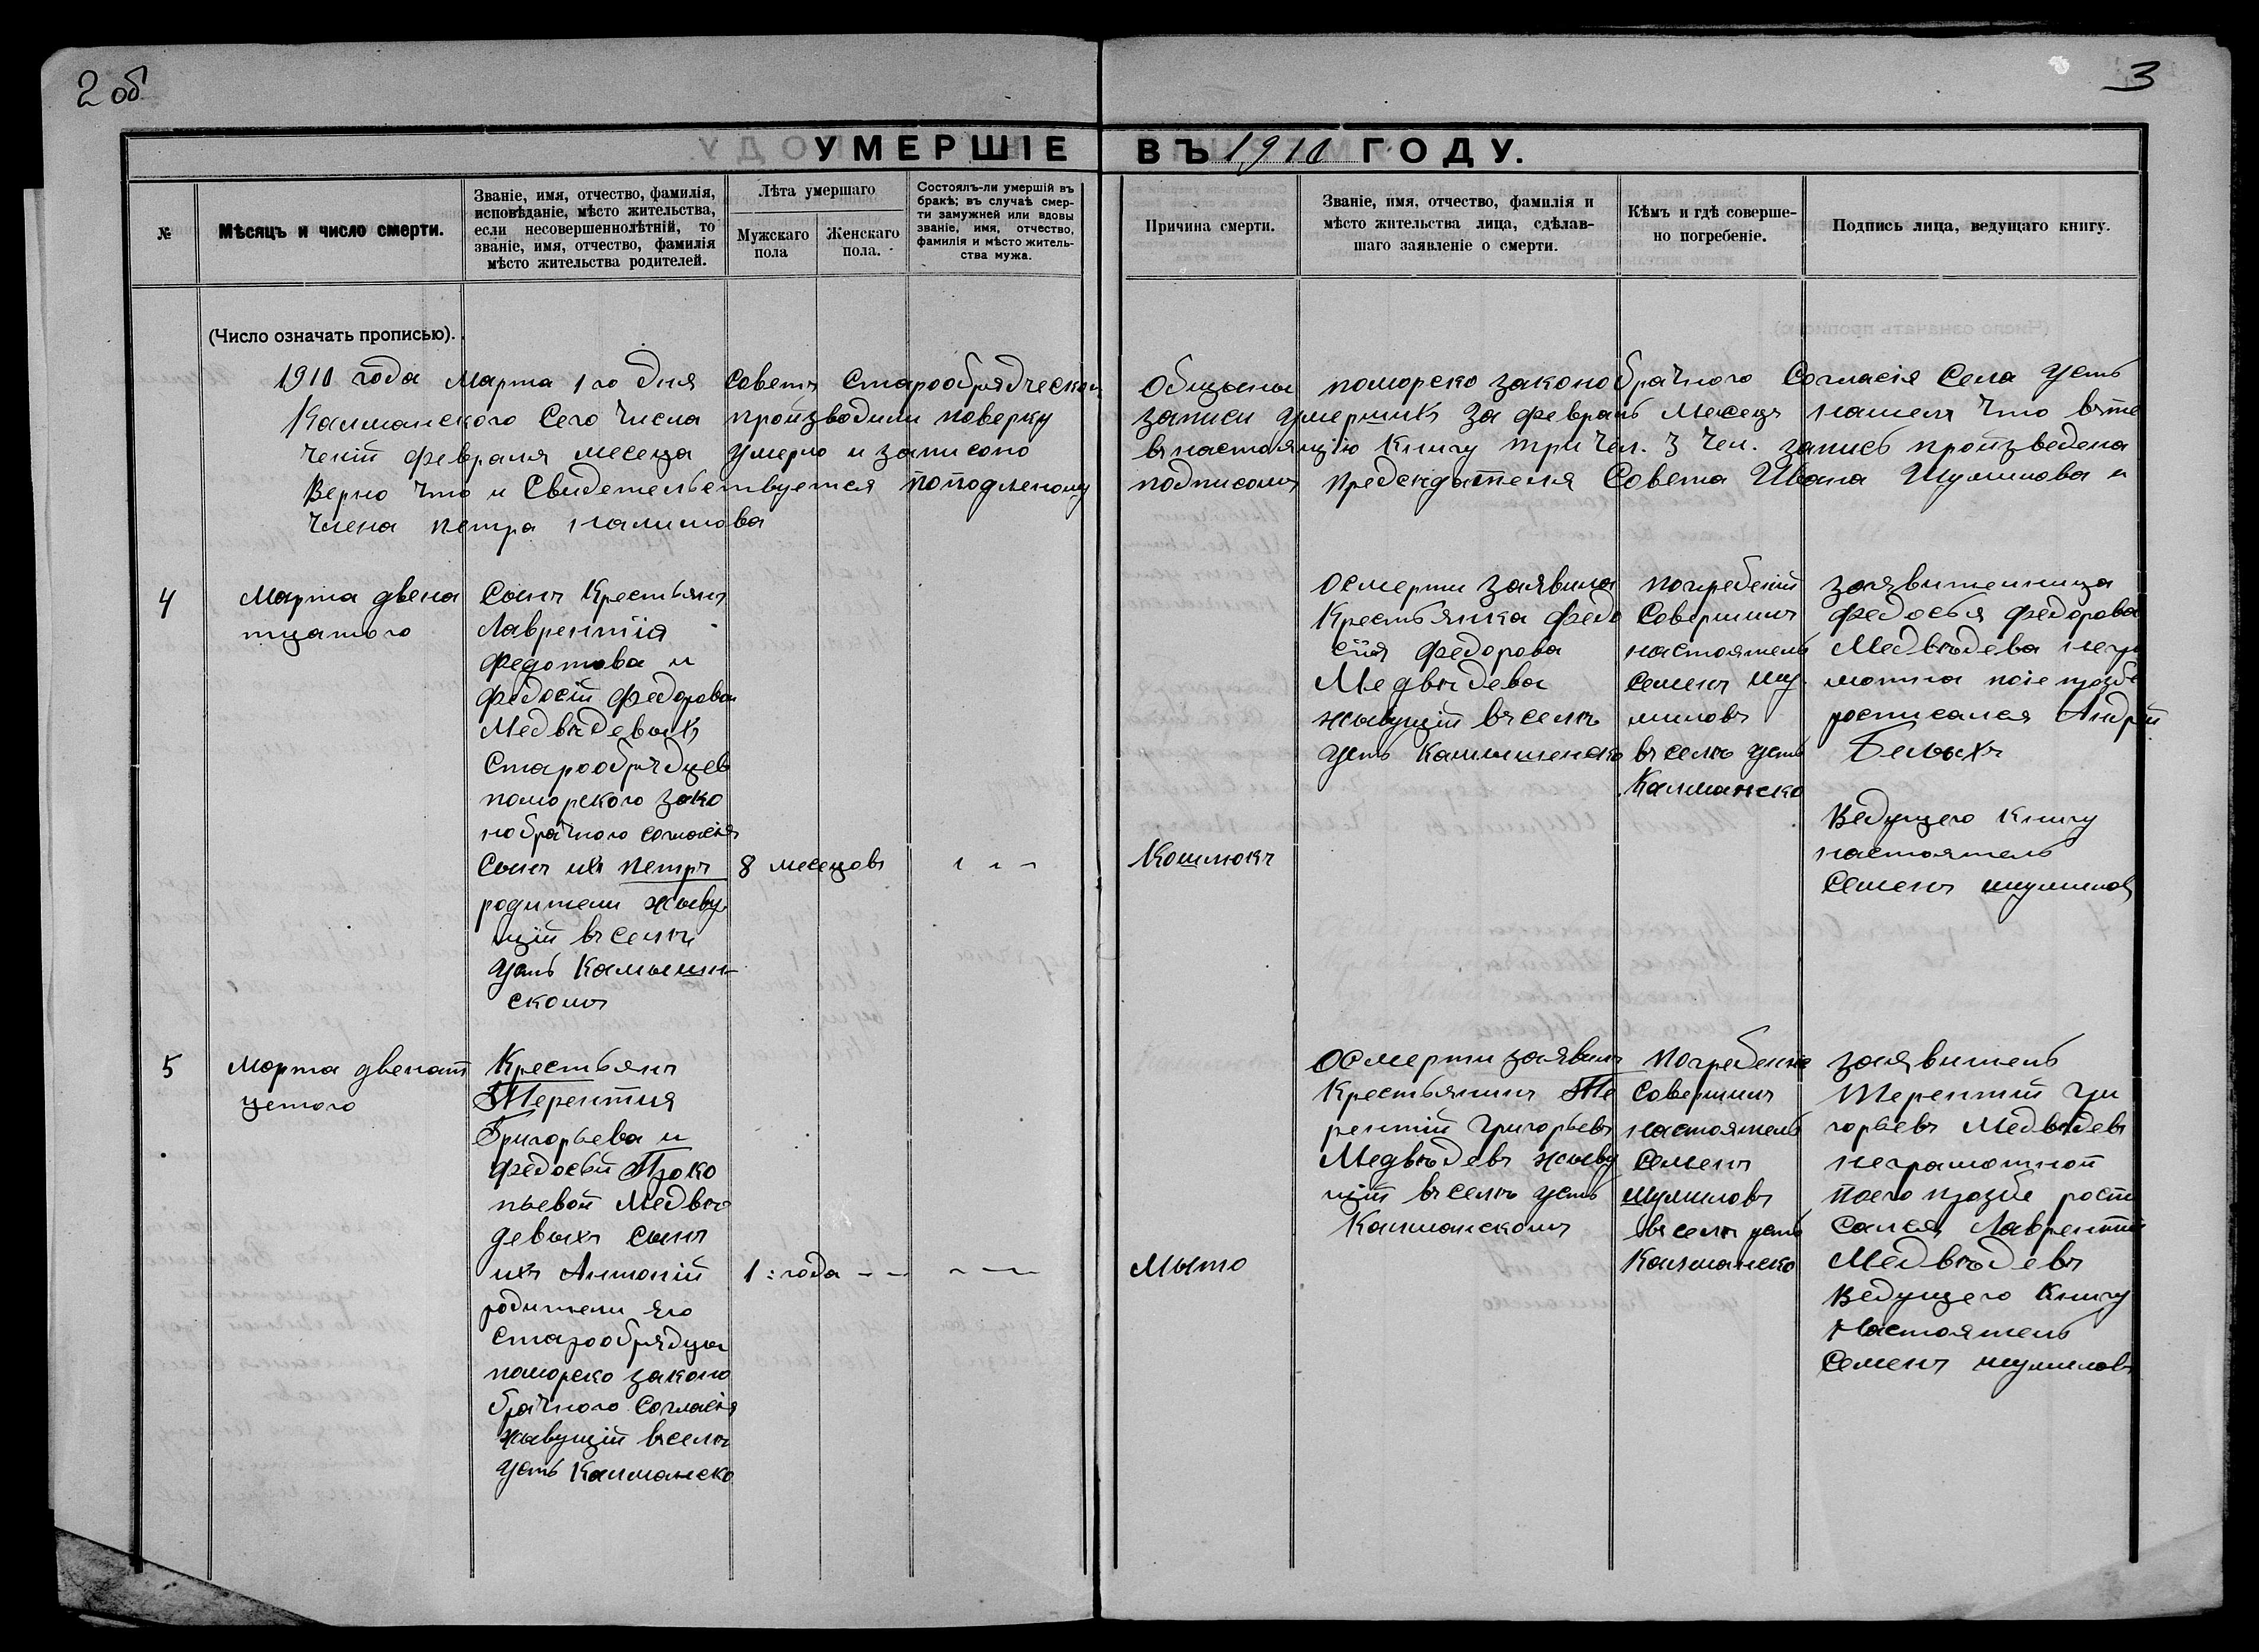 2 об
3
УМЕРШІЕ ВЪ 1910 ГОДУ.
№
Мѣсяцъ и число смерти.
Званіе, имя, отчество, фамилія,
исповѣданіе, мѣсто жительства,
если несовершеннолѣтній, то
званіе, имя, отчество, фамилія
мѣсто жительства родителей.
Лѣта умершаго
Мужскаго
пола
Женскаго
пола.
Состоялъ-ли умершій въ
бракѣ; въ случаѣ смер-
ти замужней или вдовы
званіе, имя, отчество,
фамилія и мѣсто житель-
ства мужа.
Причина смерти.
Званіе, имя, отчество, фамилія и
мѣсто жительства лица, сдѣлав-
шаго заявленіе о смерти.
Кѣмъ и гдѣ соверше-
но погребеніе.
Подпись лица, ведущаго книгу.
(Число означать прописью).
1910 года марта 1 го дня Советъ Старообрядческой Общыны поморско законобрачного Согласія Села Усть
Калманского Сего Числа производили поверку записи умершихъ За февраль месецъ нашелъ Что въте
ченіи февраля месеца умерло и записоно внастоящію Книгу три Чел. 3 Чел. запись произведена
Верно Что и Свидетельствуется поподленому подписомъ председателя Совета Ивана Шумилова и
Члена петра налимова
4
Марта двена
тцатого
Сынъ Крестьянъ
Лаврентія
федотова и
федосіи федоровой
Медвѣдевыхъ
Старообрядцев
поморского зако
нобрачного согласія
Сынъ ихъ петръ
родители жыву
щіи вселѣ
усть Камышин-
скомъ
8 месецовъ
- - -
Кошлюкъ
осмерти заявила
Крестьянка федо
сія федорова
Медвѣдева
жывущіи вселѣ
усть Камышенско
погребеніи
Совершилъ
настоятель
семенъ шу
миловъ
вселѣ усть
Калманско
заявителница
федосья федорова
Медвѣдева негр
мотна поіе прозбе
росписался Андрій
Белыхъ
Ведущего Книгу
настоятель
Семенъ шумиловъ
5
Морта двенатт
цетого
Крестьянъ
Терентия
Григорьева и
федосьи Проко
пьевой Медвѣ
девыхъ сынъ
ихъ Антоній
родители его
старообрядцы
поморско законо
брачного Согласія
жывущіи вселѣ
усть Калманско
1: года - -
- - -
Мыто
осмерти заявилъ
Крестьянинъ Те
рентій Григорьевъ
Медвѣдевъ жыву
щіи вселѣ усть
Калманскомъ
Погребение
Совершилъ
настоятель
Семенъ
шумиловъ
вселѣ усть
Калманско
заявитель
Терентий Гри
горьевъ Медвѣдевъ
неграмотной
поего прозбе роспи
сался Лаврентій
Медвѣдевъ
Ведущего Книгу
Настоятель
Семенъ шумиловъ